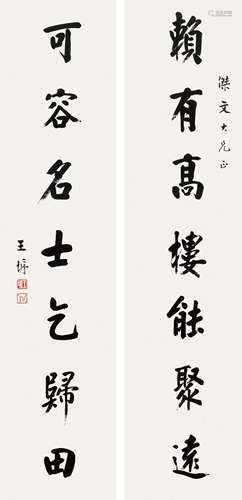 賴有高樓能聚遠
傑文大兄正
可容名士乞歸田
王